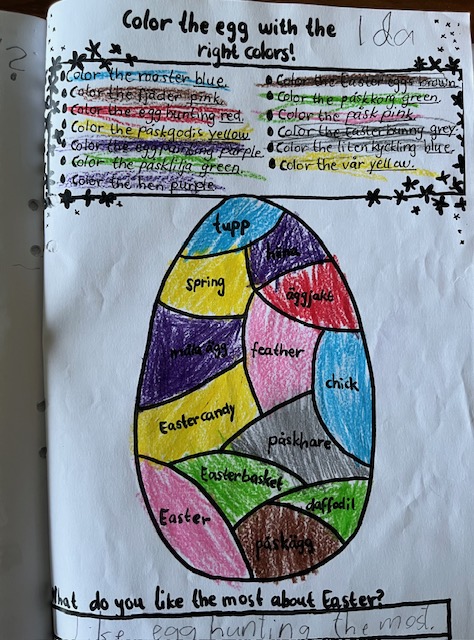 Color the egg with the
right colors!
Ida
?
Color the rooster blue.
Color the fjäder pink.
Color the egg hunting red.
Color the påskgodis yellow
Color the egg painting purple.
Color the påsklilja green.
Color the hen purple.
Color the Easter eggs brown
Color the påskkorg green.
Color the påsk pink.
Color the Easterbunny grey.
Color the liten kyckling blue.
Color the vår yellow.
tupp
höna
spring
äggjakt
måla ägg
feather
chick
Eastercandy
påskhare
Easterbasket
daffodil
Easter
påskägg
What do you like the most about Easter?
like egg hunting the most.